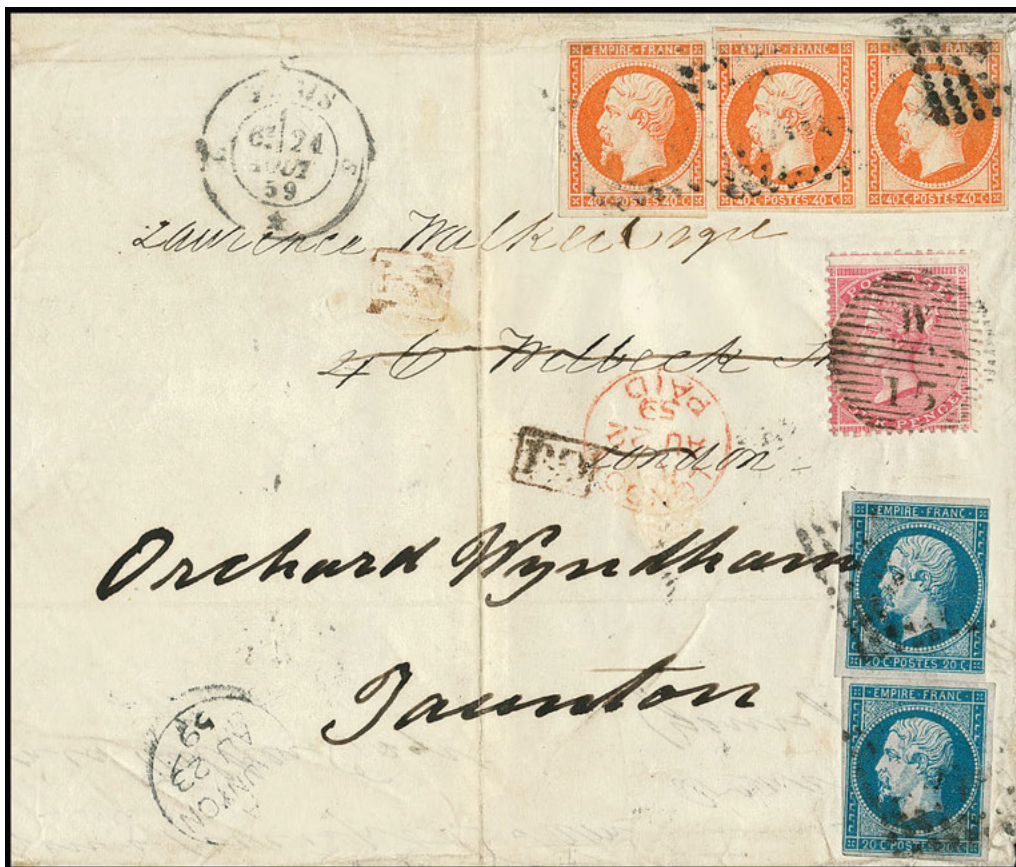 EMPIRE · FRANC
40 C · POSTES · 40 C
EMPIRE · FRANC
40 C · POSTES · 40 C
FRANC
40 C · POSTES · 40 C
PARIS
6E 21
AOUT
59
Lawrence Walker Esqre
46 Welbeck
London
PD
LONDON
AU
59
PAID
W
15
PENCE
Orchard Wyndham
Taunton
EMPIRE · FRANC
20 C · POSTES · 20 C
EMPIRE · FRANC
20 C · POSTES · 20 C
TAUNTON
AU 23
59